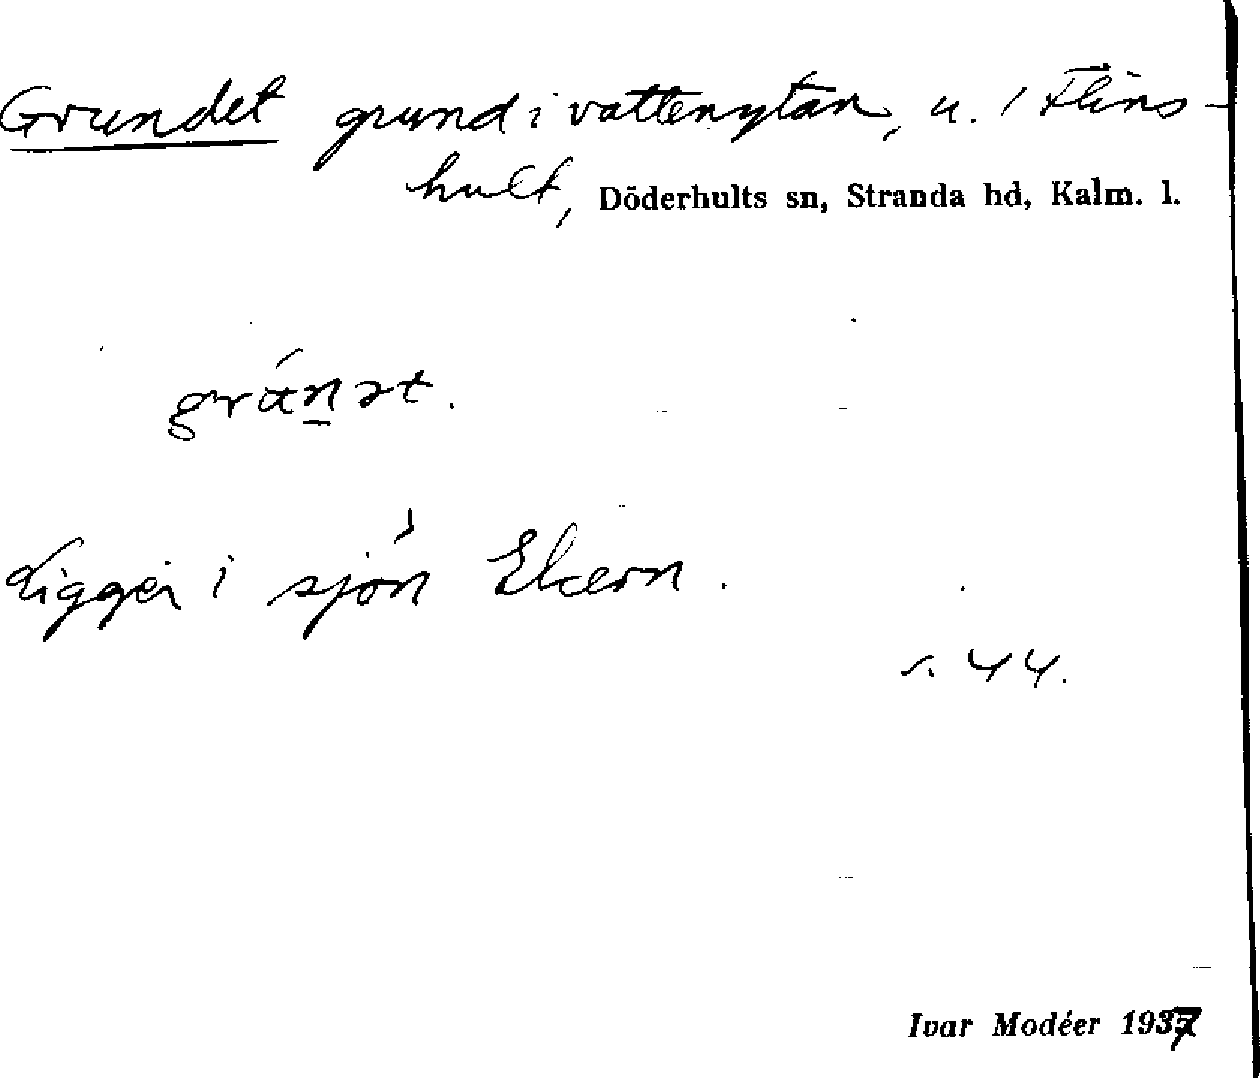 Grundet grund i vattenytan, u. / Flins-
hult, Döderhults sn, Stranda hd, Kalm. l.
gránət.
Ligger i sjön Ekern.
s. 44.
Ivar Modéer 1937